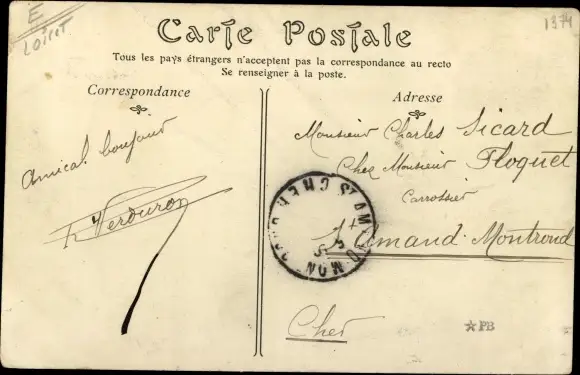 E
LOIRET
1374
Carte Postale
Tous les pays étrangers n'acceptent pas la correspondance au recto
Se renseigner à la poste.
Correspondance
Adresse
Amical bonjour
Monsieur Charles Sicard
Chez Monsieur Floquet
Carrossier
St Amand-Montrond
Cher
PB